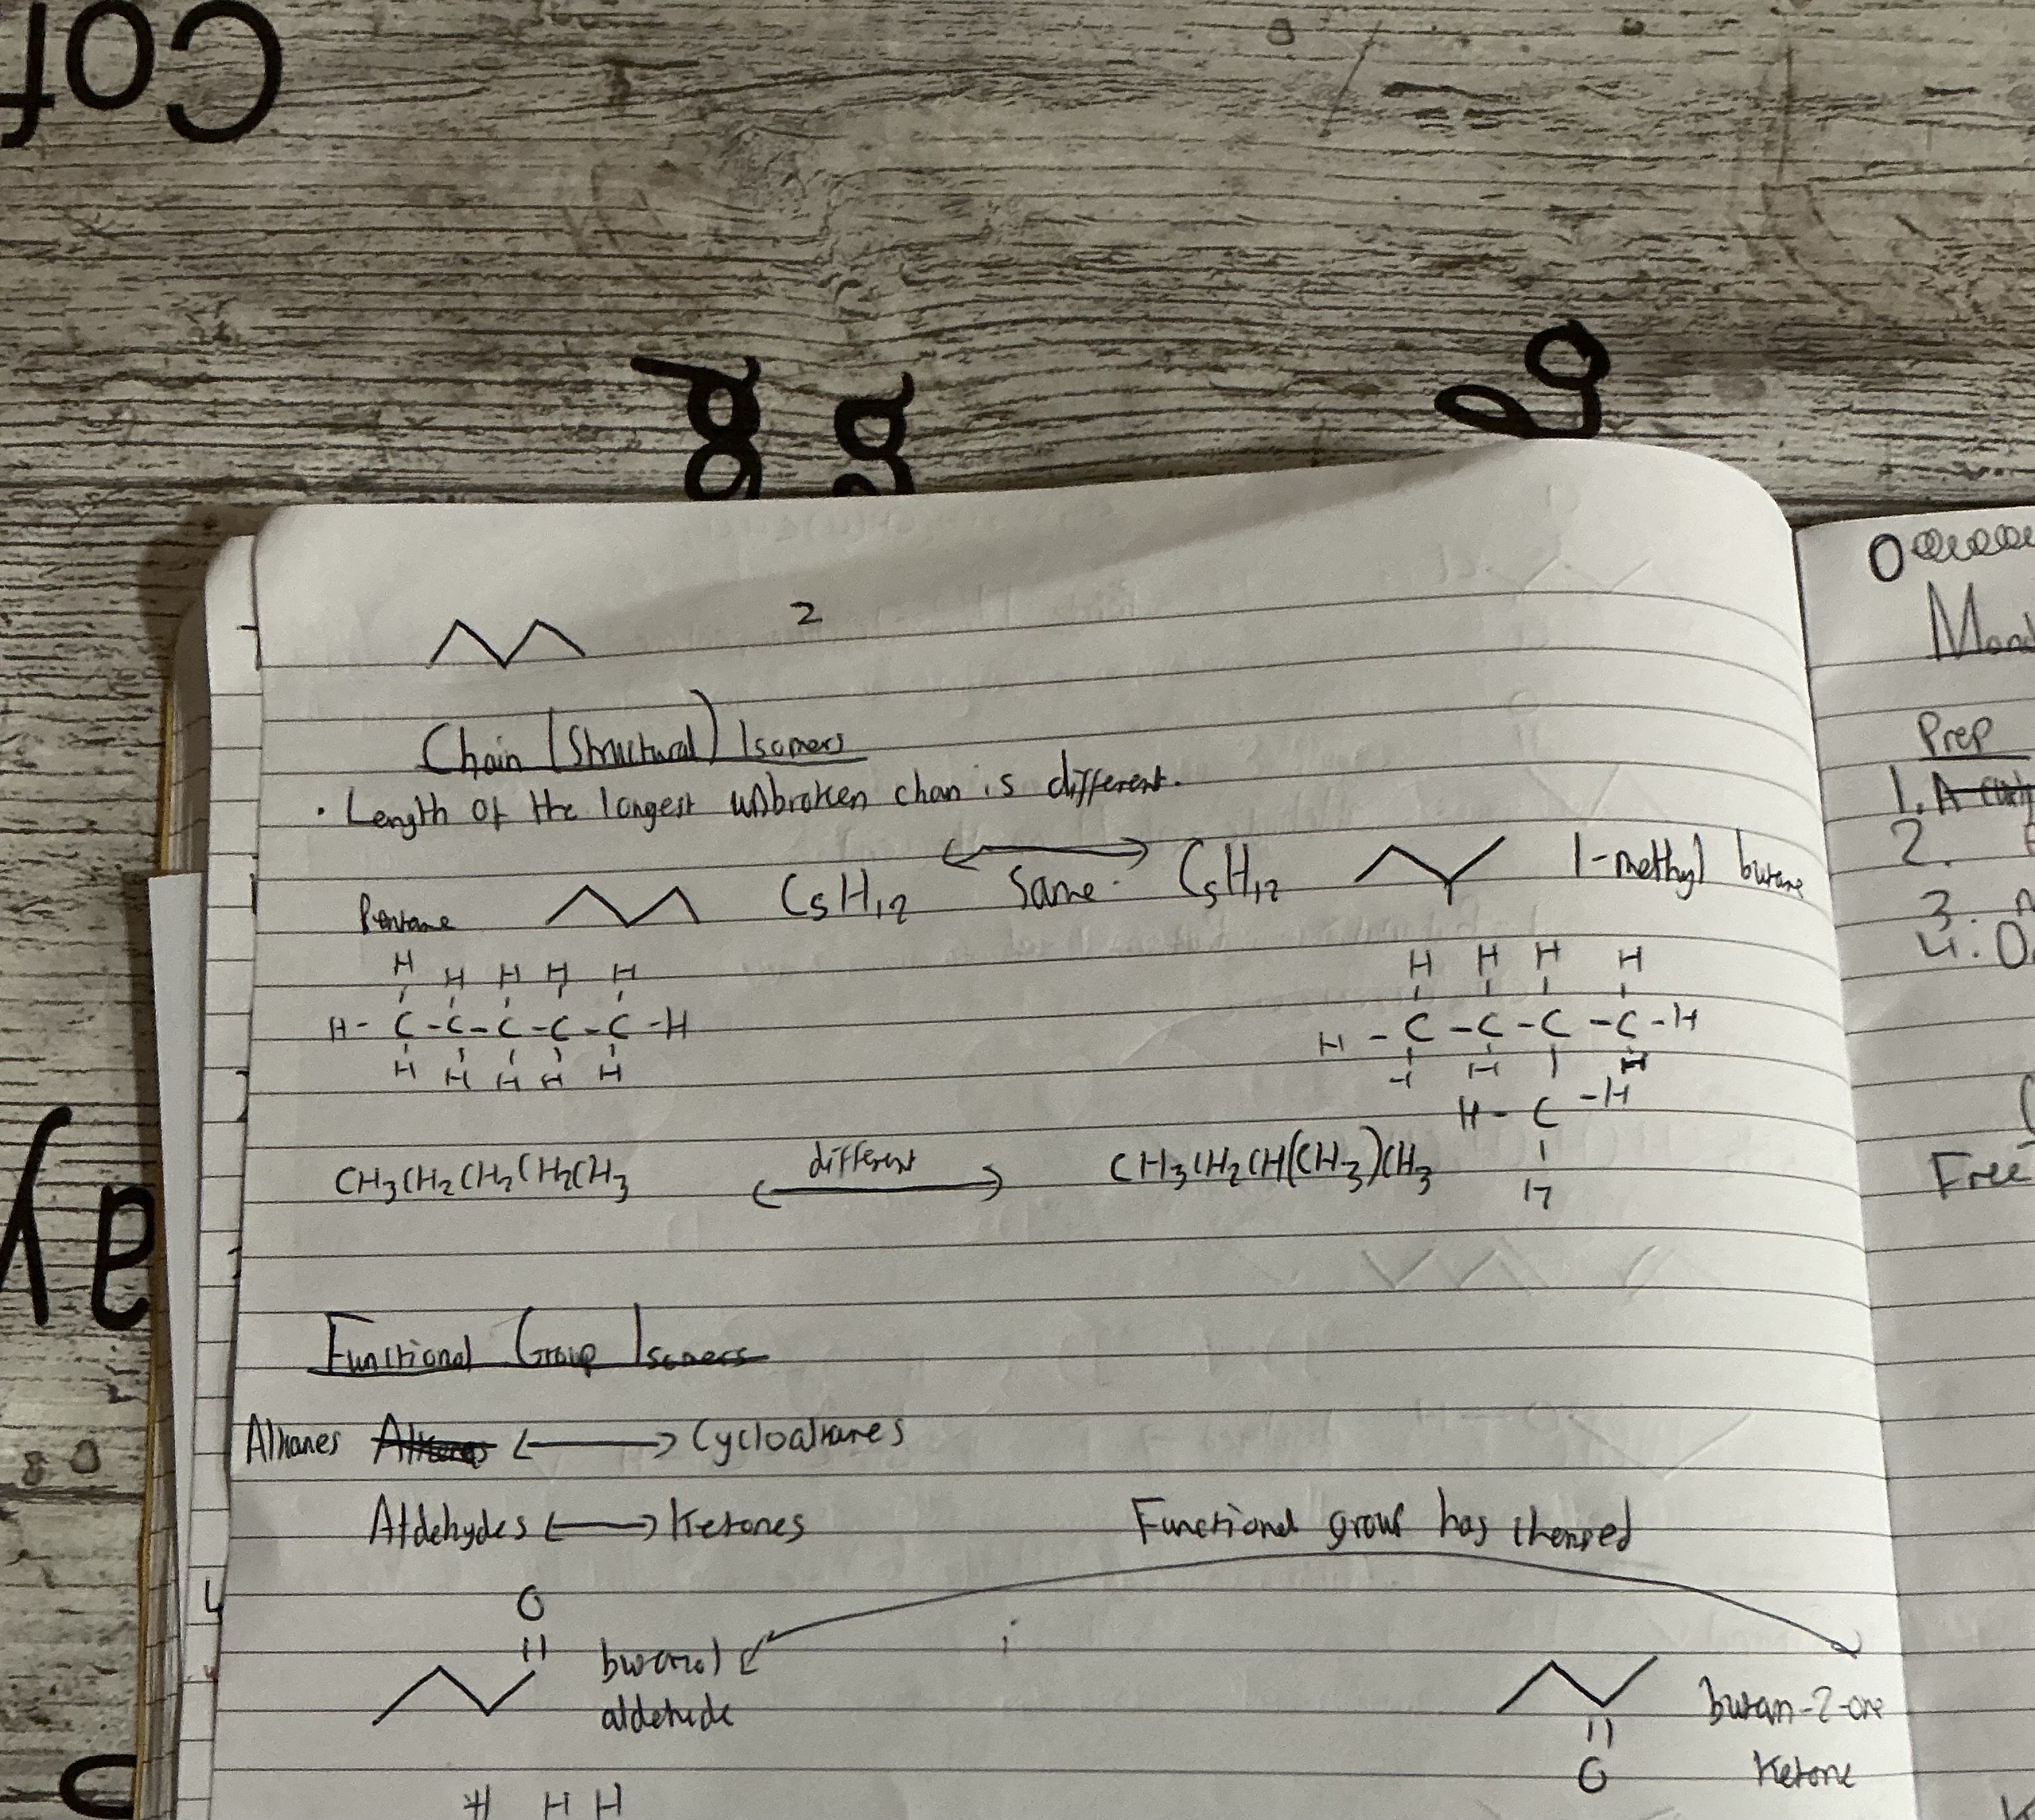 2
Chain (Structural) Isomers
• Length of the longest unbroken chan is different.
Pentane C₅H₁₂ ⟷ Same C₅H₁₂ 1-methyl butane
H H H H H
H-C-C-C-C-C-H
H H H H H
H H H H
H-C-C-C-C-H
H H H
H-C-H
H
CH₃CH₂CH₂CH₂CH₃ ⟷ different CH₃CH₂CH(CH₃)CH₃
Functional Group Isomers
Alkanes ⟷ Cycloalkanes
Aldehydes ⟷ Ketones
Functional group has
O
aldehyde
butan-2-one
O
Ketone
H H H
Prep
1.
2.
3.
4.
Free
Cof
ay